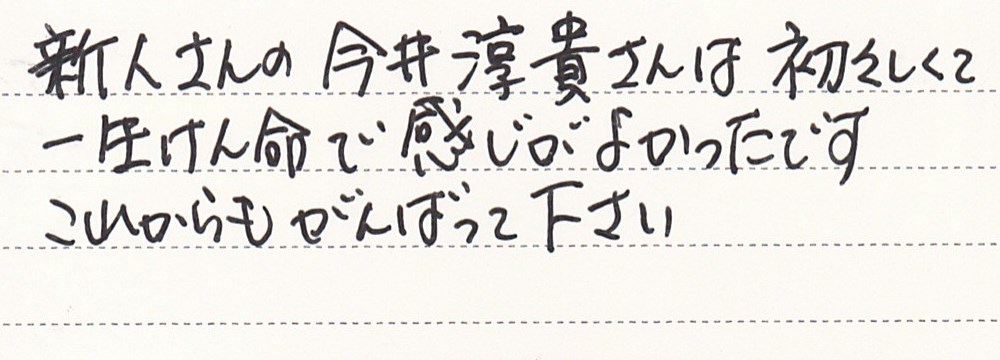 新人さんの 今井淳貴さんは 初々しくて
一生けん命で 感じがよかったです
これからもがんばって下さい